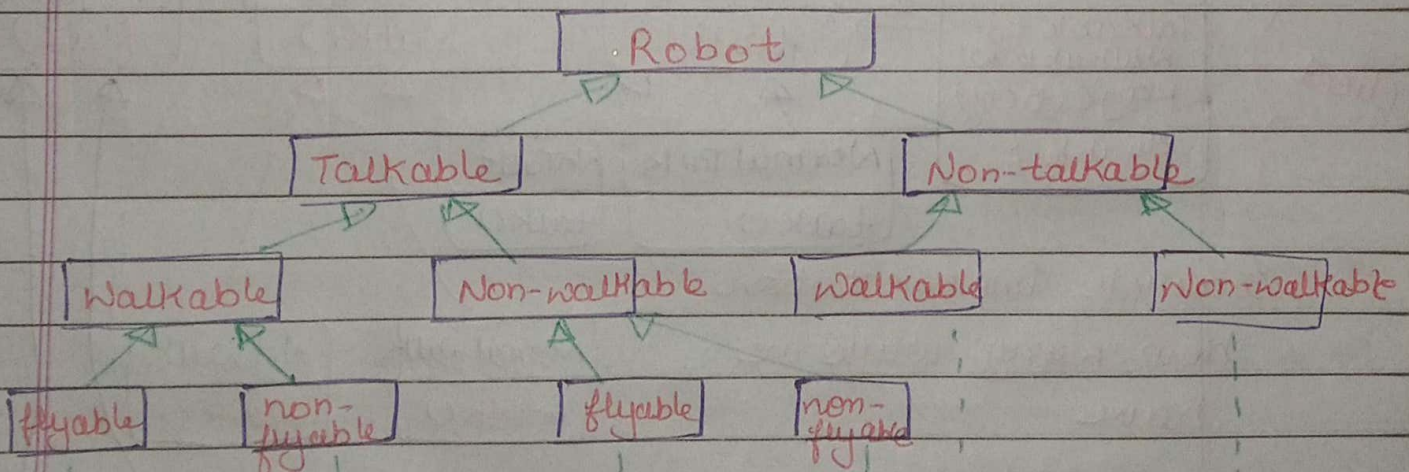 Robot
Talkable
Non-talkable
Walkable
Non-walkable
Walkable
Non-walkable
flyable
non-
flyable
flyable
non-
flyable